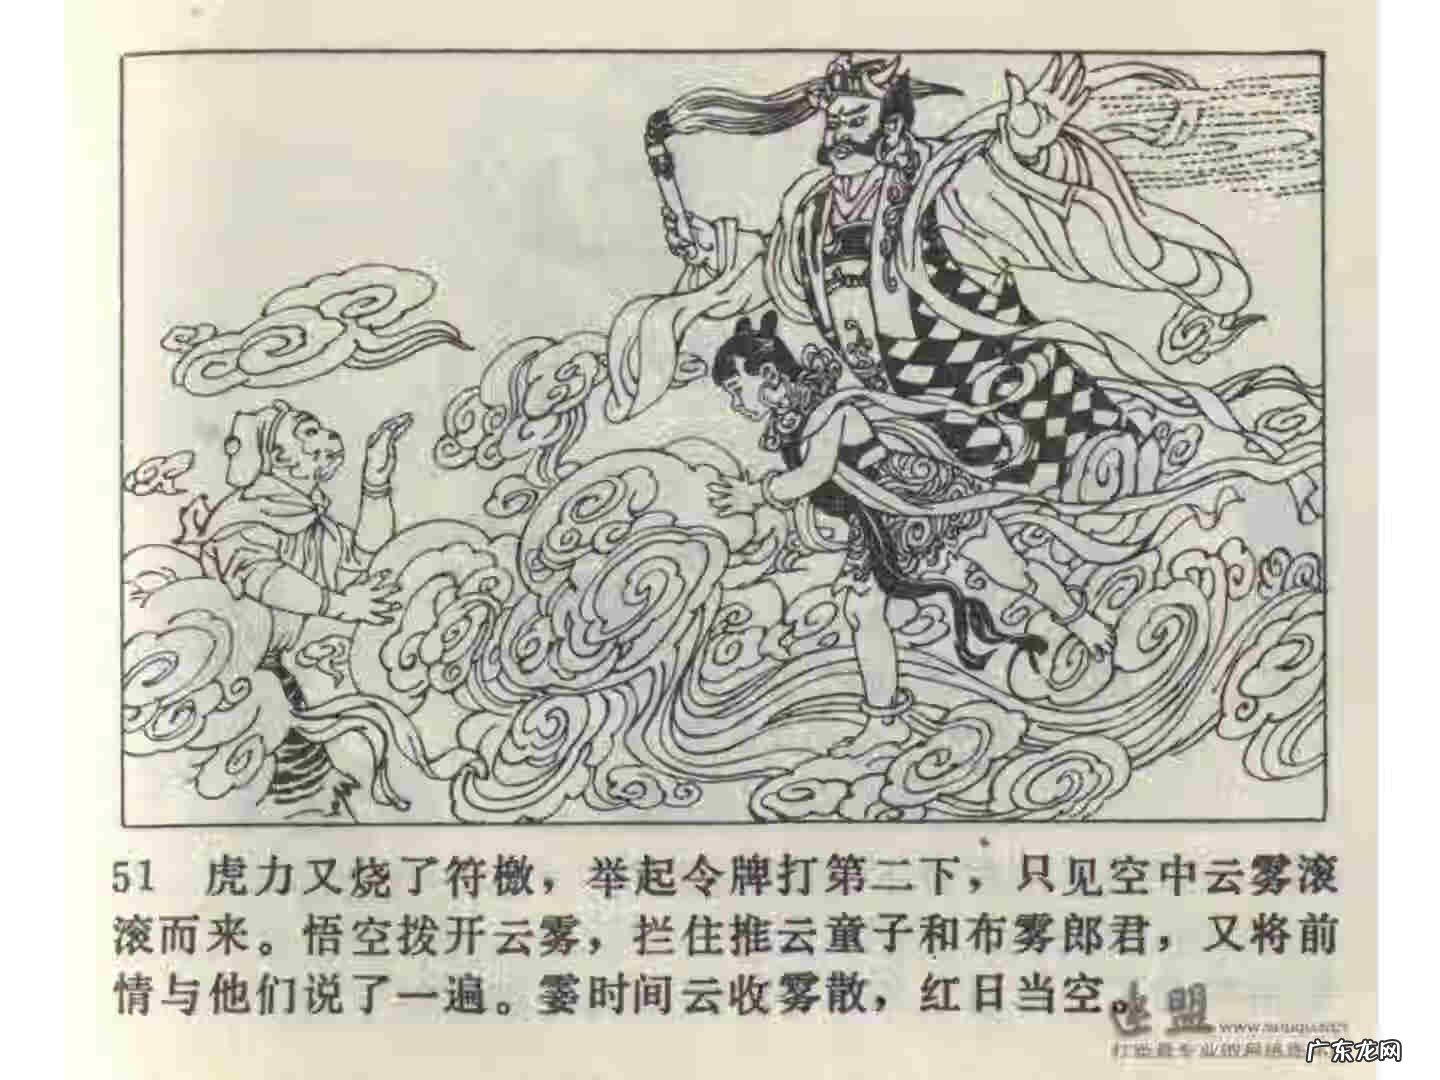 51 虎力又烧了符檄，举起令牌打第二下，只见空中云雾滚
滚而来。悟空拨开云雾，拦住推云童子和布雾郎君，又将前
情与他们说了一遍。霎时间云收雾散，红日当空。
连盟
广东龙网